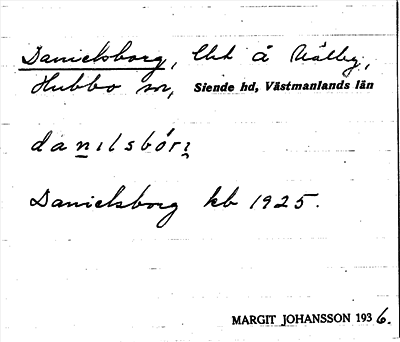 Danielsborg, lht å Målby,
Hubbo sn, Siende hd, Västmanlands län
danɩlsbórɩ̨
Danielsborg kb 1925.
MARGIT JOHANSSON 1936.